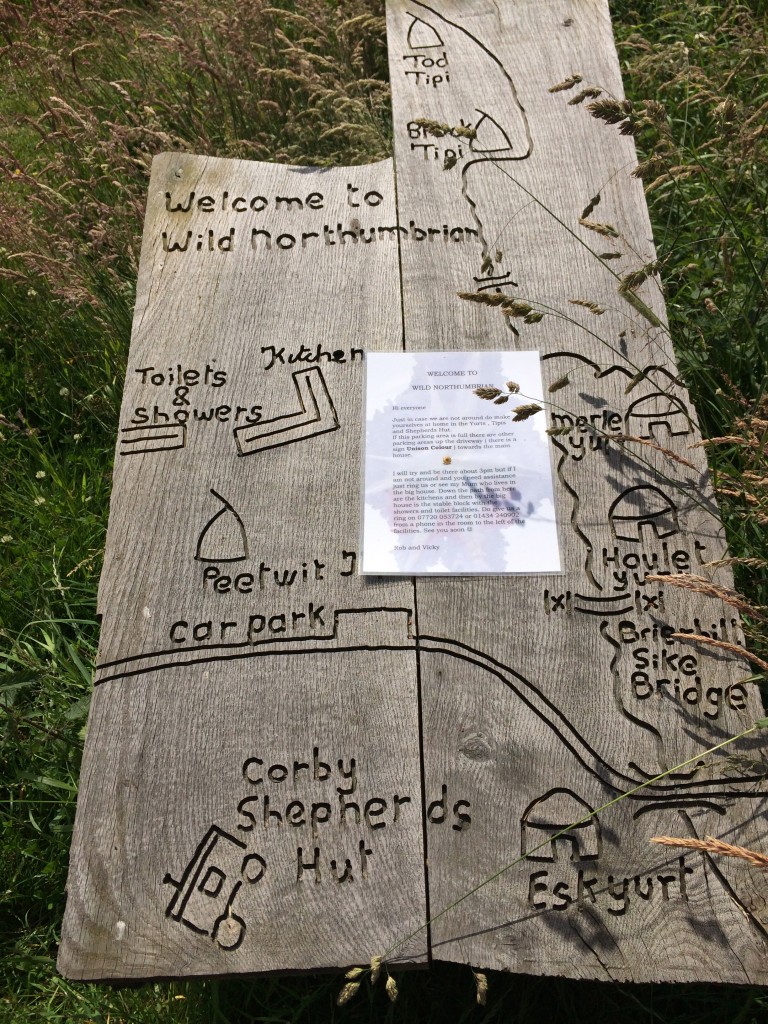 Tod
Tipi
Brock
Tipi
Welcome to
Wild Northumbrian
Kitchen
Toilets
&
showers
WELCOME TO
WILD NORTHUMBRIAN
Hi everyone
Just in case we are not around do make
yourselves at home in the Yurts , Tipis
and Shepherds Hut.
If this parking area is full there are other
parking areas up the driveway ( there is a
sign Unison Colour ) towards the main
house.
I will try and be there about 3pm but if I
am not around and you need assistance
just ring us or see my Mum who lives in
the big house. Down the path from here
are the kitchens and then by the big
house is the stable block with the
showers and toilet facilities. Do give us a
ring on 07720 053724 or 01434
from a phone in the room to the left of the
facilities. See you soon ☺
Rob and Vicky
merle
yu
Houlet
yurt
Peetwit T
Car park
Brierhill
Sike
Bridge
Corby
Shepherds
Hut
Eskyurt